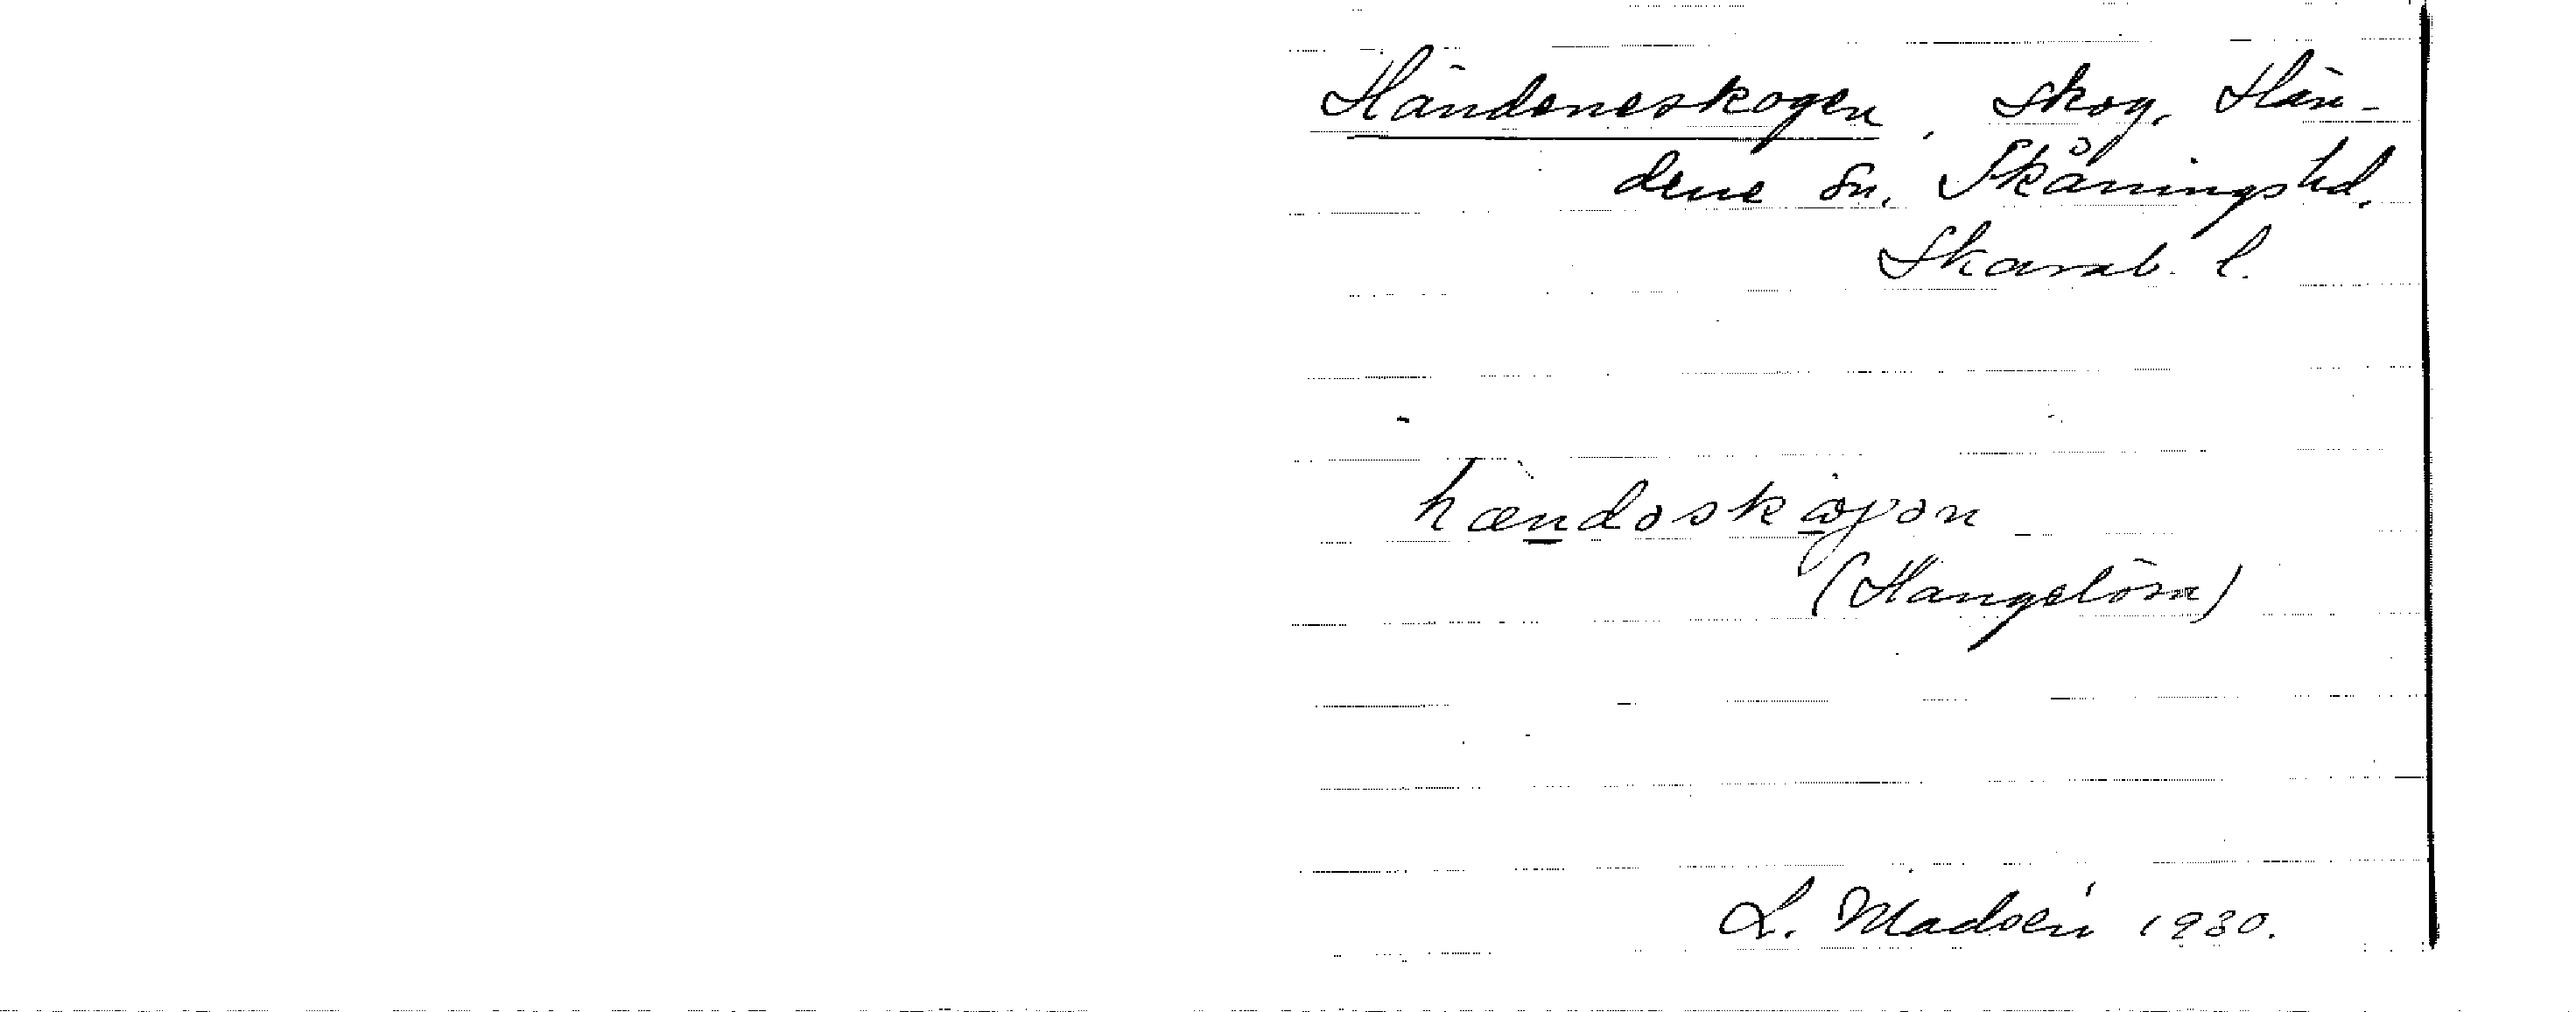 Händeneskogen, skog, Hän-
dene sn, Skånings hd,
Skarab. l.
hændəskωγən
(Hangelösa)
L. Madsén 1930.